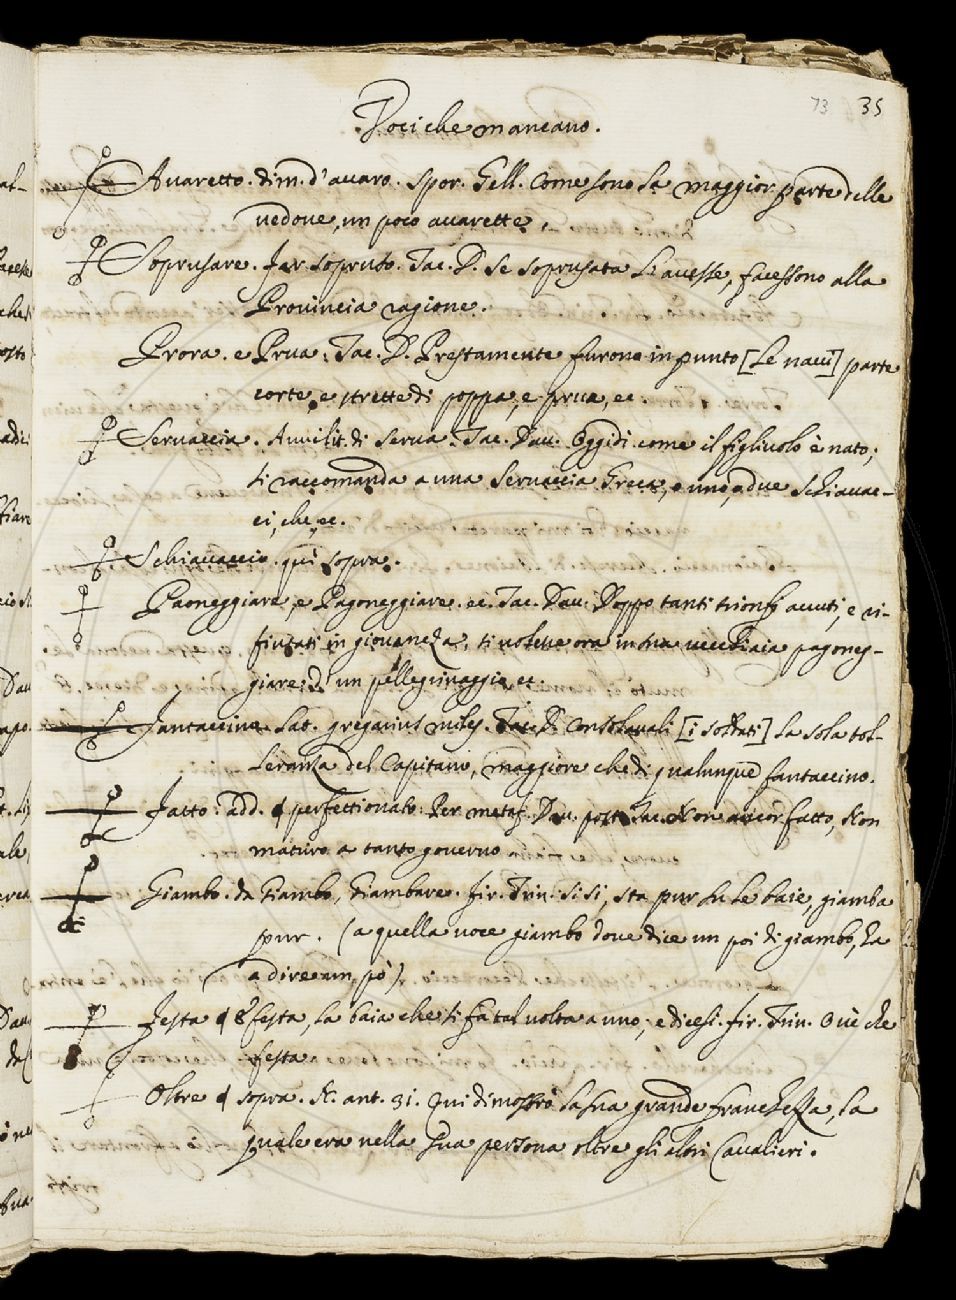 73 35
Voci che mancano.
Avaretto. dim. d'avaro. Spor. Gell. Come sono la maggior parte delle
vedove, un poco avarette.
Soprusare. Far sopruso. Tac. D. Se soprusata l'avesse, facessono alla
Provincia ragione.
Prora. e Prua. Tac. D. Prestamente furono in punto [le navi] parte
corte, e strette di poppa, e prua, ec.
Servaccia. Avvilit. di Serva. Tac. Dav. Oggidì come il figliuolo è nato,
si raccomanda a una servaccia Greca, o uno, o due schiavac-
ci, che, ec.
Schiavaccio. quì sopra.
Paoneggiare, e Pagoneggiare. ec. Tac. Dav. Doppo tanti trionfi avuti, e ri-
fiutati in giovanezza, ti volesse ora in sua vecchiaia pagoneg-
giare di un pellegrinaggio ec.
Fantaccino. Lat. gregarius miles. Tac. D. Consolavali [i soldati] la sola tol-
leranza del Capitano, maggiore che di qualunque fantaccino.
Fatto. add. perfettionato. Per metaf. Dav. post. Tac. Non ancor fatto, Non
maturo a tanto governo
Giambo. da Giambo, Giambare. Fir. Trin. si si, sta pur su le baie, giamba
pur. (a quella voce giambo dove dice un poi di giambo, ha
a dire un pò).
Festa festa, la baia che si fa tal volta a uno, e dicesi. Fir. Trin. O ve che
festa.
Oltre sopra. N. ant. 31. Qui dimostrò la sua grande franchezza, la
quale era nella sua persona oltre gli altri Cavalieri.